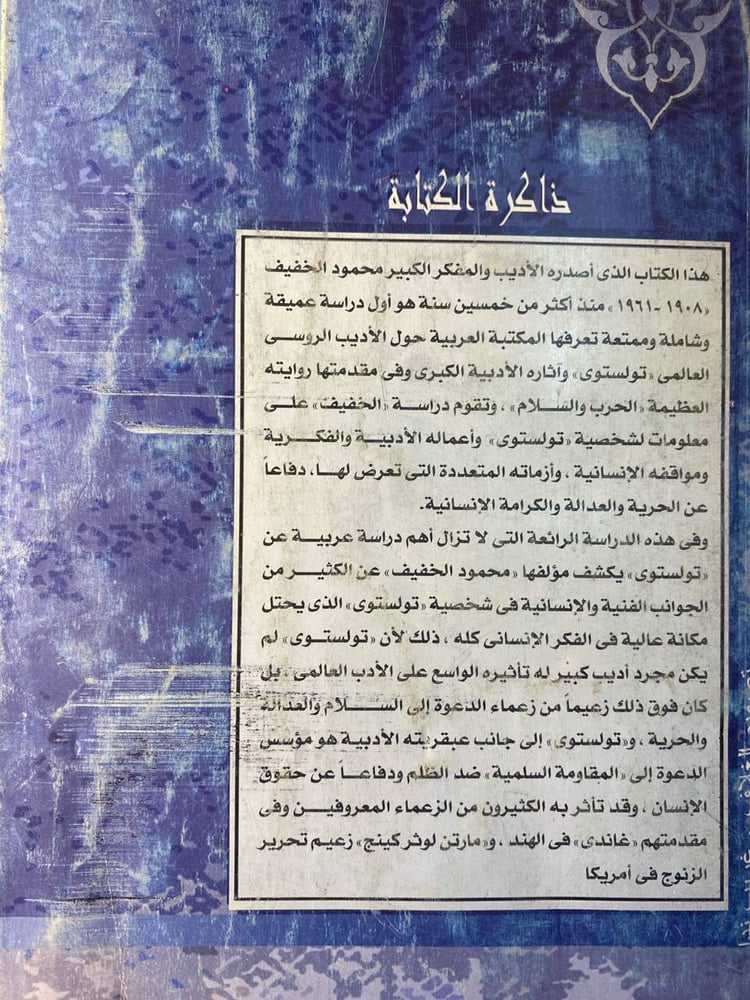 ذاكرة الكتابة
هذا الكتاب الذى أصدره الأديب والمفكر الكبير محمود الخفيف
«١٩٠٨ -١٩٦١» منذ أكثر من خمسين سنة هو أول دراسة عميقة
وشاملة وممتعة تعرفها المكتبة العربية حول الأديب الروسى
العالمى «تولستوى» وآثاره الأدبية الكبرى وفى مقدمتها روايته
العظيمة «الحرب والسلام» ، وتقوم دراسة «الخفيف» على
معلومات لشخصية «تولستوى» وأعماله الأدبية والفكرية
ومواقفه الإنسانية ، وأزماته المتعددة التى تعرض لها، دفاعاً
عن الحرية والعدالة والكرامة الإنسانية.
وفى هذه الدراسة الرائعة التى لا تزال أهم دراسة عربية عن
«تولستوى» يكشف مؤلفها «محمود الخفيف» عن الكثير من
الجوانب الفنية والإنسانية فى شخصية «تولستوى» الذى يحتل
مكانة عالية فى الفكر الإنسانى كله ، ذلك لأن «تولستوى» لم
يكن مجرد أديب كبير له تأثيره الواسع على الأدب العالمى ، بل
كان فوق ذلك زعيماً من زعماء الدعوة إلى السلام والعدالة
والحرية ، و«تولستوى» إلى جانب عبقريته الأدبية هو مؤسس
الدعوة إلى «المقاومة السلمية» ضد الظلم ودفاعاً عن حقوق
الانسان ، وقد تأثر به الكثيرون من الزعماء المعروفين وفى
مقدمتهم «غاندى» فى الهند ، و«مارتن لوثر كينج» زعيم تحرير
الزنوج فى أمريكا